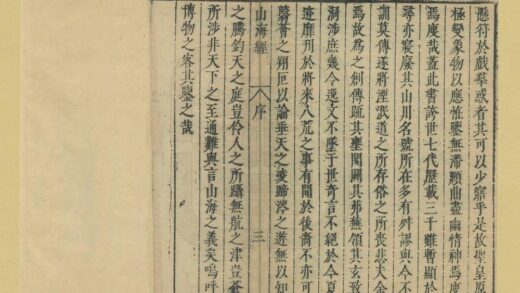 懸符於戲羣惑者其可以少寤乎是故聖皇原
極變象物以應怪鑒無滯賾曲盡幽情神焉廋
焉廋哉蓋此書誇世七代歷載三千雖暫顯於
尋亦寢廢其山川名號所在多有舛謬與今不
訓莫傳遂將湮泯道之所存俗之所喪悲夫余
焉故爲之創傳疏其壅閡闢其茀蕪領其玄致
洞涉庶幾令逸文不墜于世奇言不絕於今夏
迹靡刊於將來八荒之事有聞於後裔不亦可
蘙薈之翔叵以論垂天之凌蹄涔之遊無以知
山海經 序 三
之騰鈞天之庭豈伶人之所躡無航之津豈蒼
所涉非天下之至通難與言山海之義矣嗚呼
博物之客其鑒之哉